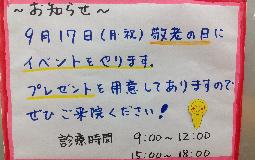 ～お知らせ～
9月17日(月・祝) 敬老の日に
イベントをやります。
プレゼントを用意してありますので
ぜひご来院ください!
診療時間 9:00～12:00
15:00～18:00